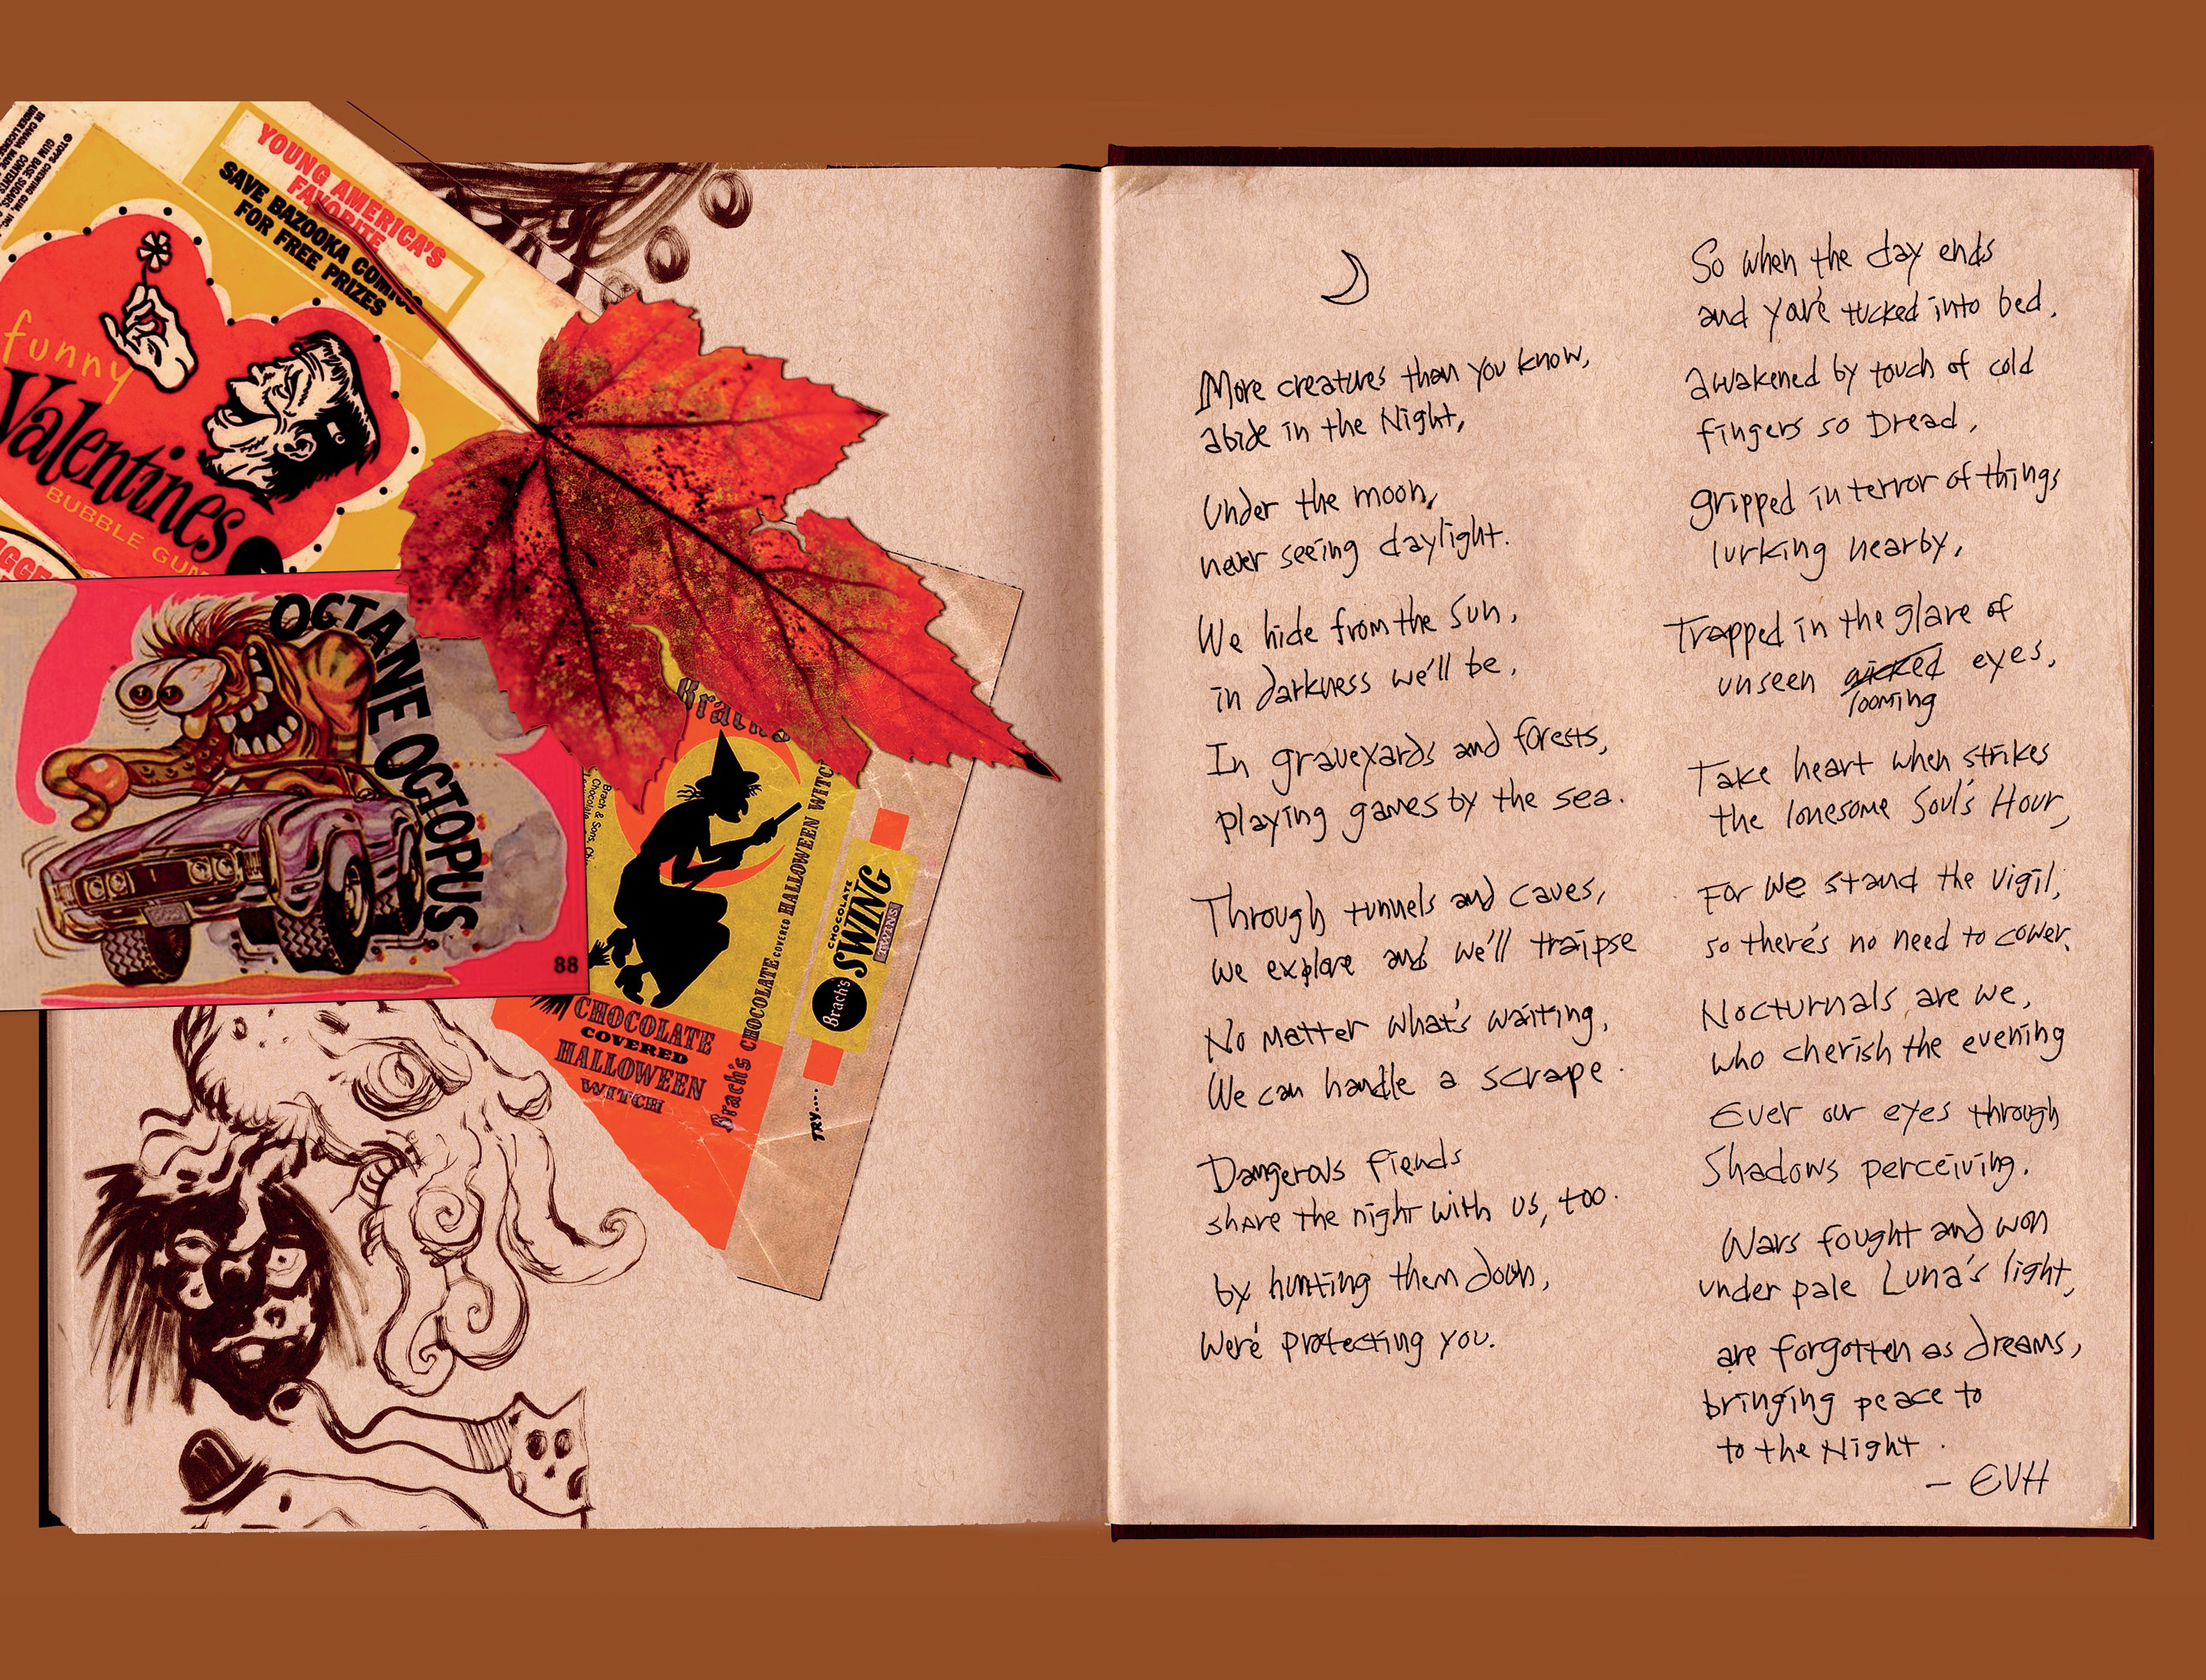 YOUNG AMERICA'S
FAVORITE
SAVE BAZOOKA COMICS
FOR FREE PRIZES
funny
Valentines
BUBBLE GUM
OCTANE OCTOPUS
88
Brach's
CHOCOLATE
COVERED
HALLOWEEN
WITCH
Brach's CHOCOLATE COVERED HALLOWEEN WITCH
Brach's
CHOCOLATE
SWING
TWINS
TRY....
More creatures than you know,
abide in the Night,
Under the moon,
never seeing daylight.
We hide from the Sun,
in darkness we'll be,
In graveyards and forests,
playing games by the sea.
Through tunnels and caves,
we explore and we'll traipse
No matter what's waiting,
We can handle a scrape.
Dangerous fiends
share the night with us, too.
by hunting them down,
We're protecting you.
So when the day ends
and you're tucked into bed,
awakened by touch of cold
fingers so Dread,
gripped in terror of things
lurking nearby,
Trapped in the glare of
unseen wicked eyes,
looming
Take heart when strikes
the lonesome Soul's Hour,
For we stand the vigil,
so there's no need to cower.
Nocturnals are we,
who cherish the evening
Ever our eyes through
Shadows perceiving.
Wars fought and won
under pale Luna's light,
are forgotten as dreams,
bringing peace to
to the Night.
– EVH